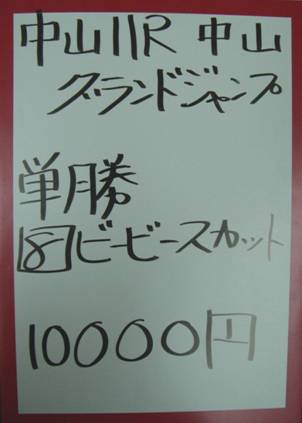 中山11R 中山
グランドジャンプ
単勝
8 ビービースカット
10000円